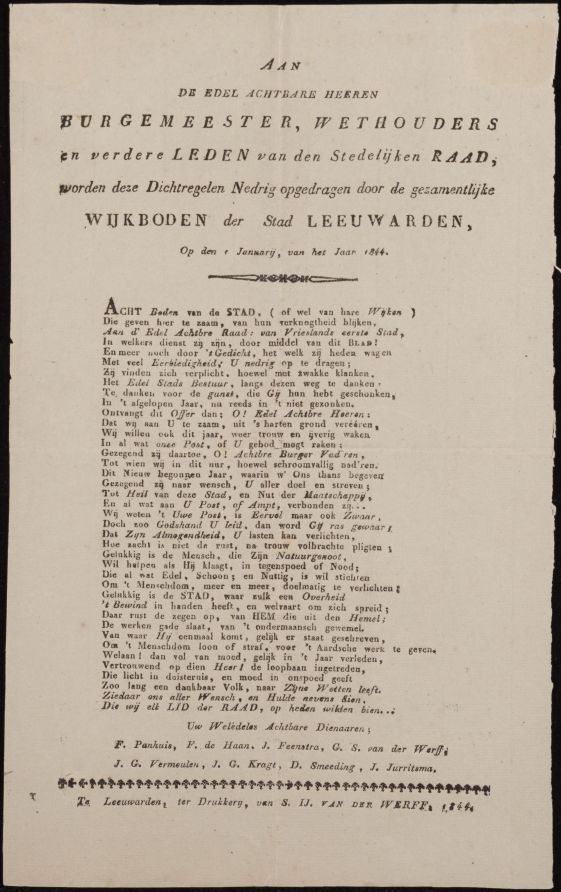 AAN
DE EDEL ACHTBARE HEEREN
BURGEMEESTER, WETHOUDERS
en verdere LEDEN van den Stedelijken RAAD,
worden deze Dichtregelen Nedrig opgedragen door de gezamentlijke
WIJKBODEN der Stad LEEUWARDEN,
Op den 1 Januarij, van het Jaar 1844.
ACHT Boden van de STAD, ( of wel van hare Wijken )
Die geven hier te zaam, van hun verknogtheid blijken,
Aan d' Edel Achtbre Raad: van Vrieslands eerste Stad,
In welkers dienst zij zijn, door middel van dit BLAD!
En meer noch door 't Gedicht, het welk zij heden wagen
Met veel Eerbiedigheid; U nedrig op te dragen;
Zij vinden zich verplicht, hoewel met zwakke klanken,
Het Edel Stads Bestuur, langs dezen weg te danken
Te danken voor de gunst, die Gij hun hebt geschonken,
In 't afgelopen Jaar, nu reeds in 't niet gezonken.
Ontvangt dit Offer dan; O! Edel Achtbre Heeren:
Dat wij aan U te zaam, uit 's harten grond veréêren,
Wij willen ook dit jaar, weer trouw en ijverig waken
In al wat onze Post, of U gebod mogt raken;
Gezegend zij daartoe, O! Achtbre Burger Vad'ren,
Tot wien wij in dit uur, hoewel schroomvallig nad'ren.
Dit Nieuw begonnen Jaar, waarin w' Ons thans begeven
Gezegend zij naar wensch, U aller doel en streven;
Tot Heil van deze Stad, en Nut der Maatschappij,
En al wat aan U Post, of Ampt, verbonden zij...
Wij weten 't Uwe Post, is Eervol maar ook Zwaar,
Doch zoo Godshand U leid, dan word Gij ras gewaar;
Dat Zijn Almogendheid, U lasten kan verlichten,
Hoe zacht is niet de rust, na trouw volbrachte pligten;
Gelukkig is de Mensch, die Zijn Natuurgenoot,
Wil helpen als Hij klaagt, in tegenspoed of Nood;
Die al wat Edel, Schoon; en Nuttig, is wil stichten
Om 't Menschdom, meer en meer, doelmatig te verlichten;
Gelukkig is de STAD, waar zulk een Overheid
't Bewind in handen heeft, en welvaart om zich spreid;
Daar rust de zegen op, van HEM die uit den Hemel;
De werken gade slaat, van 't ondermaansch gewemel.
Van waar Hij eenmaal komt, gelijk er staat geschreven,
Om 't Menschdom loon of straf, voor 't Aardsche werk te geven.
Welaan! dan vol van moed, gelijk in 't Jaar verleden,
Vertrouwend op dien Heer! de loopbaan ingetreden,
Die licht in duisternis, en moed in onspoed geeft
Zoo lang een dankbaar Volk, naar Zijne Wetten leeft.
Ziedaar ons aller Wensch, en Hulde nevens Eien,
Die wij elk LID der RAAD, op heden wilden bien...
Uw Weledeles Achtbare Dienaaren;
F. Panhuis, F. de Haan, J. Feenstra, G. S. van der Werff,
J. G. Vermeulen, J. G. Kragt, D. Smeeding, J. Jurritsma.
Te Leeuwarden, ter Drukkerij, van S. IJ. VAN DER WERFF, 1844.